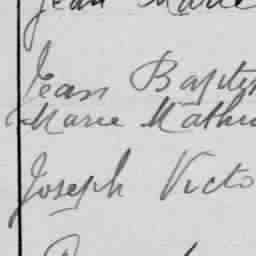 Jean Marie
Jean Baptis
Marie Mathu
Joseph Victo